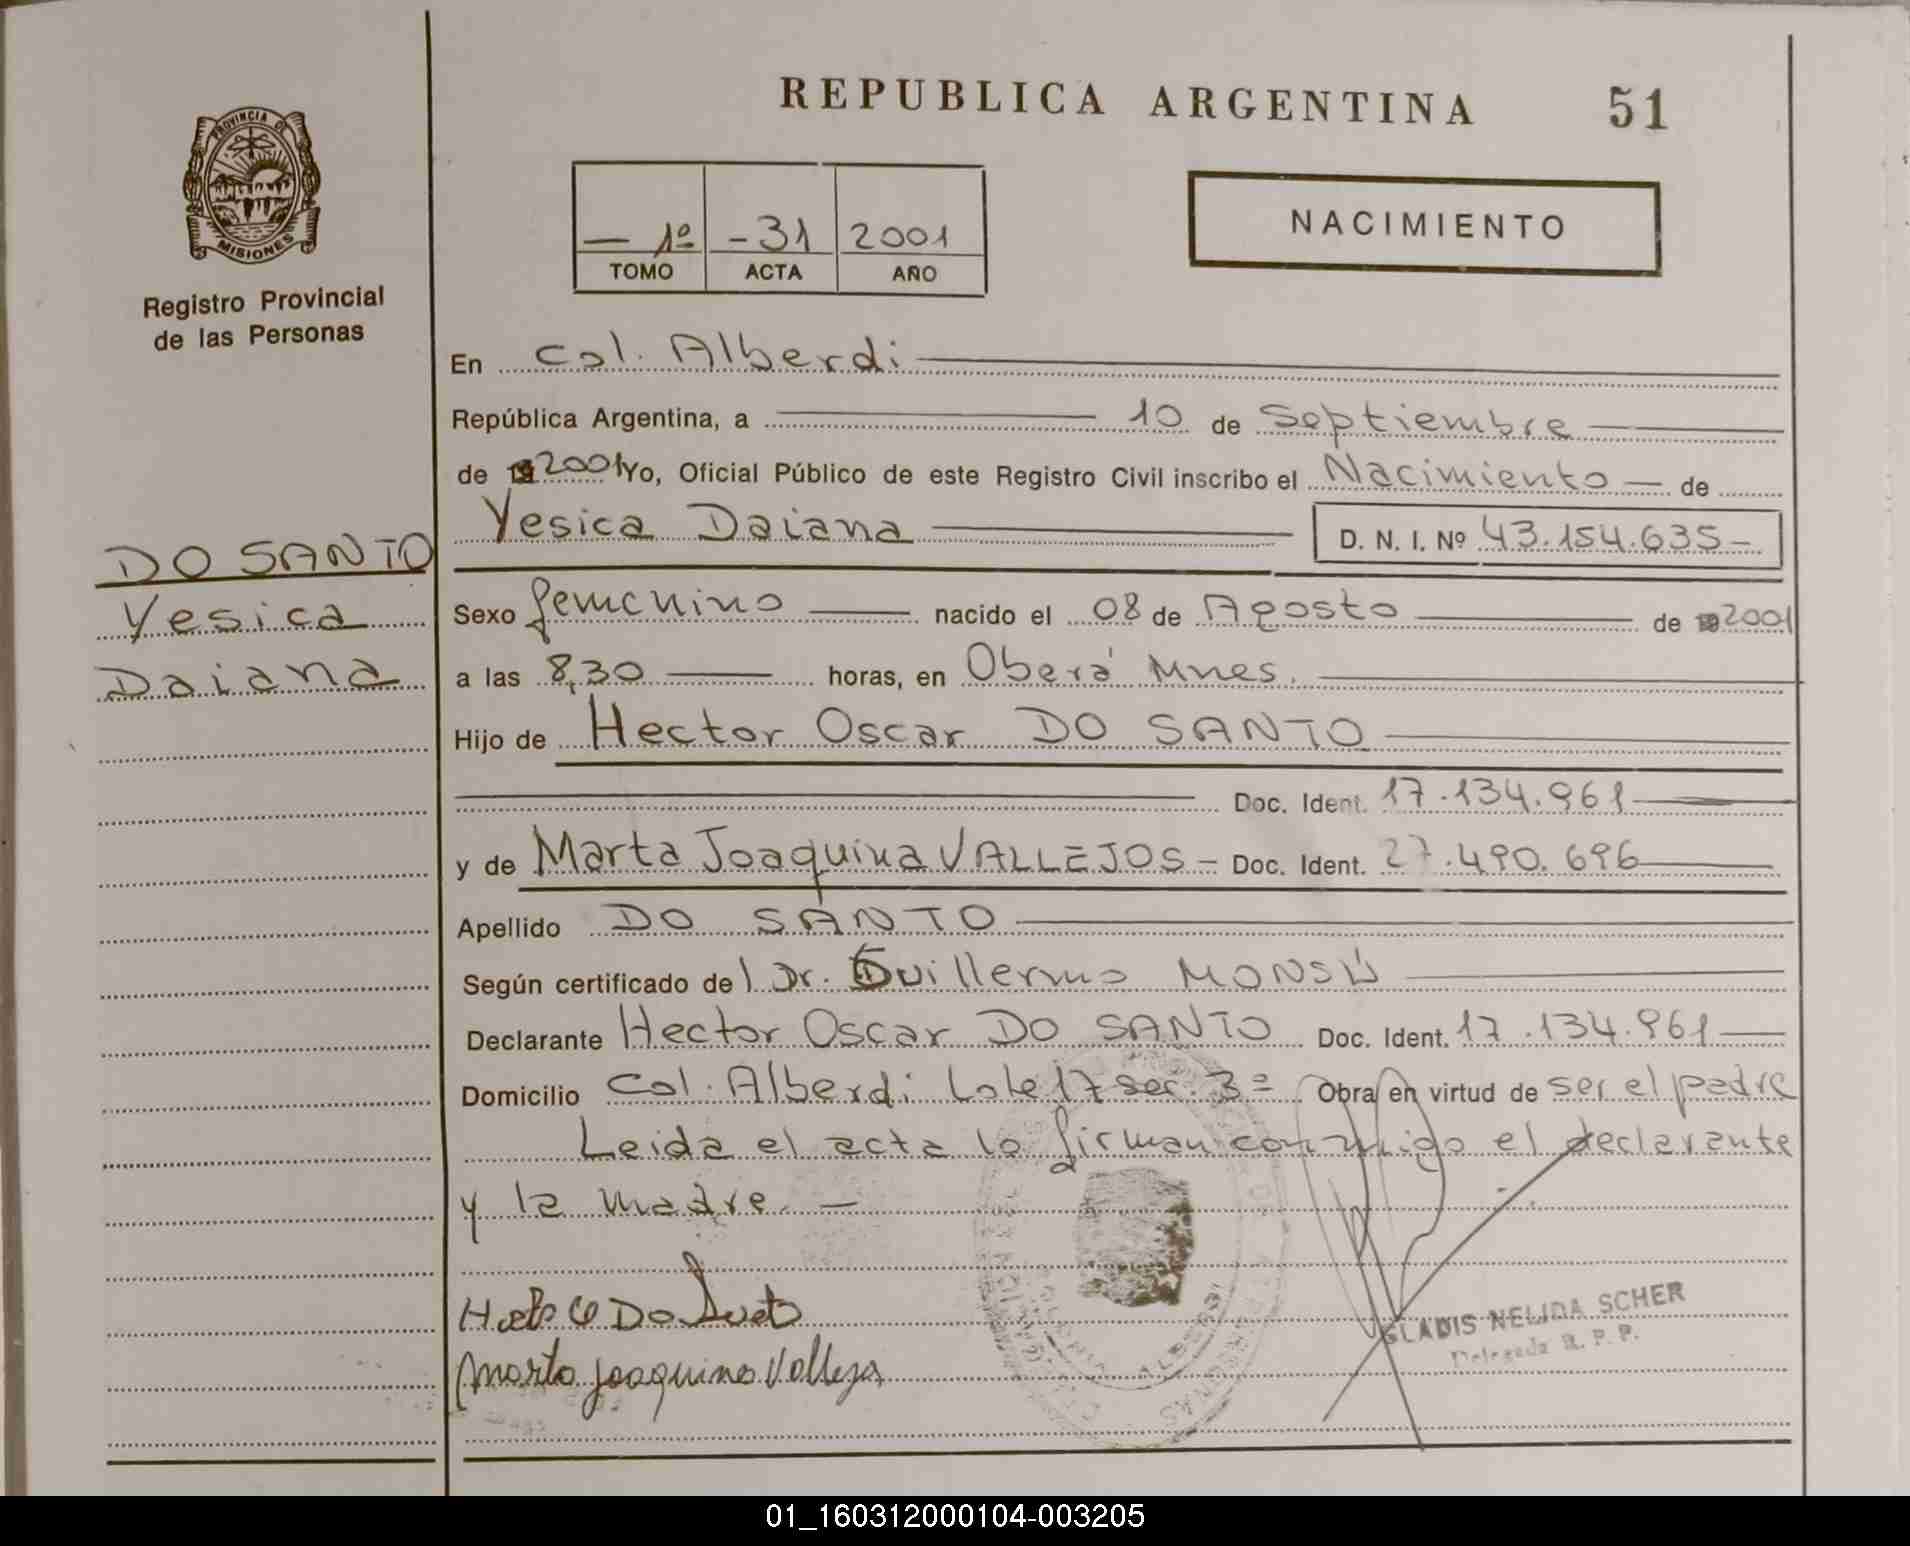 REPUBLICA ARGENTINA 51
PROVINCIA DE
MISIONES
Registro Provincial
de las Personas
— 1º -31 2001
TOMO ACTA AÑO
NACIMIENTO
En Col. Alberdi
República Argentina, a 10 de Septiembre
de 2001 Yo, Oficial Público de este Registro Civil inscribo el Nacimiento — de
Yesica Daiana D. N. I. Nº 43.154.635-
DO SANTO
Yesica
Daiana
Sexo femenino nacido el 08 de Agosto de 2001
a las 8,30 horas, en Oberá Mnes.
Hijo de Hector Oscar DO SANTO
Doc. Ident. 17.134.961
y de Marta Joaquina VALLEJOS - Doc. Ident. 27.490.696
Apellido DO SANTO
Según certificado de l Dr. Guillermo MONSÚ
Declarante Hector Oscar DO SANTO Doc. Ident. 17.134.961
Domicilio Col. Alberdi Lote 17 sec. 3º Obra en virtud de ser el padre
Leida el acta la firman conmigo el declarante
y la madre. —
Marta Joaquina Vallejos
GLADIS NELIDA SCHER
Delegada R. P. P.
01_160312000104-003205